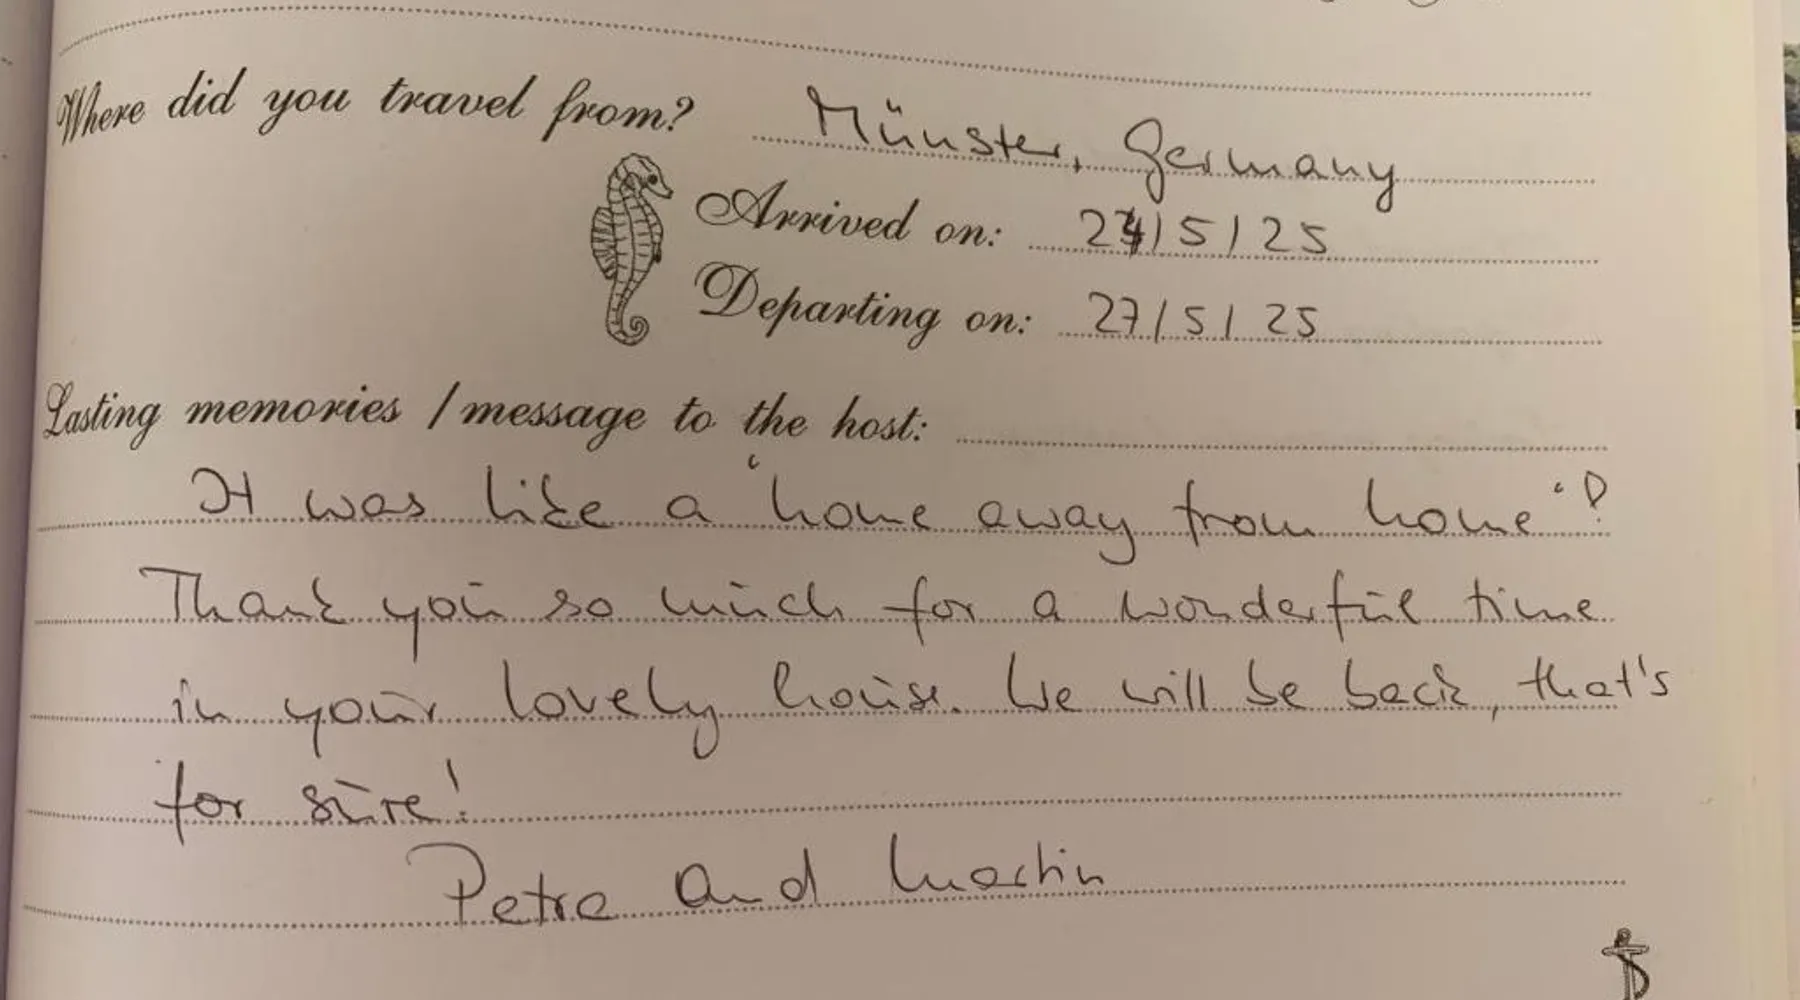 Where did you travel from? Münster, Germany
Arrived on: 24/5/25
Departing on: 27/5/25
Lasting memories / message to the host:
It was like a 'home away from home'!
Thank you so much for a wonderful time
in your lovely house. We will be back, that's
for sure!
Petra and Martin